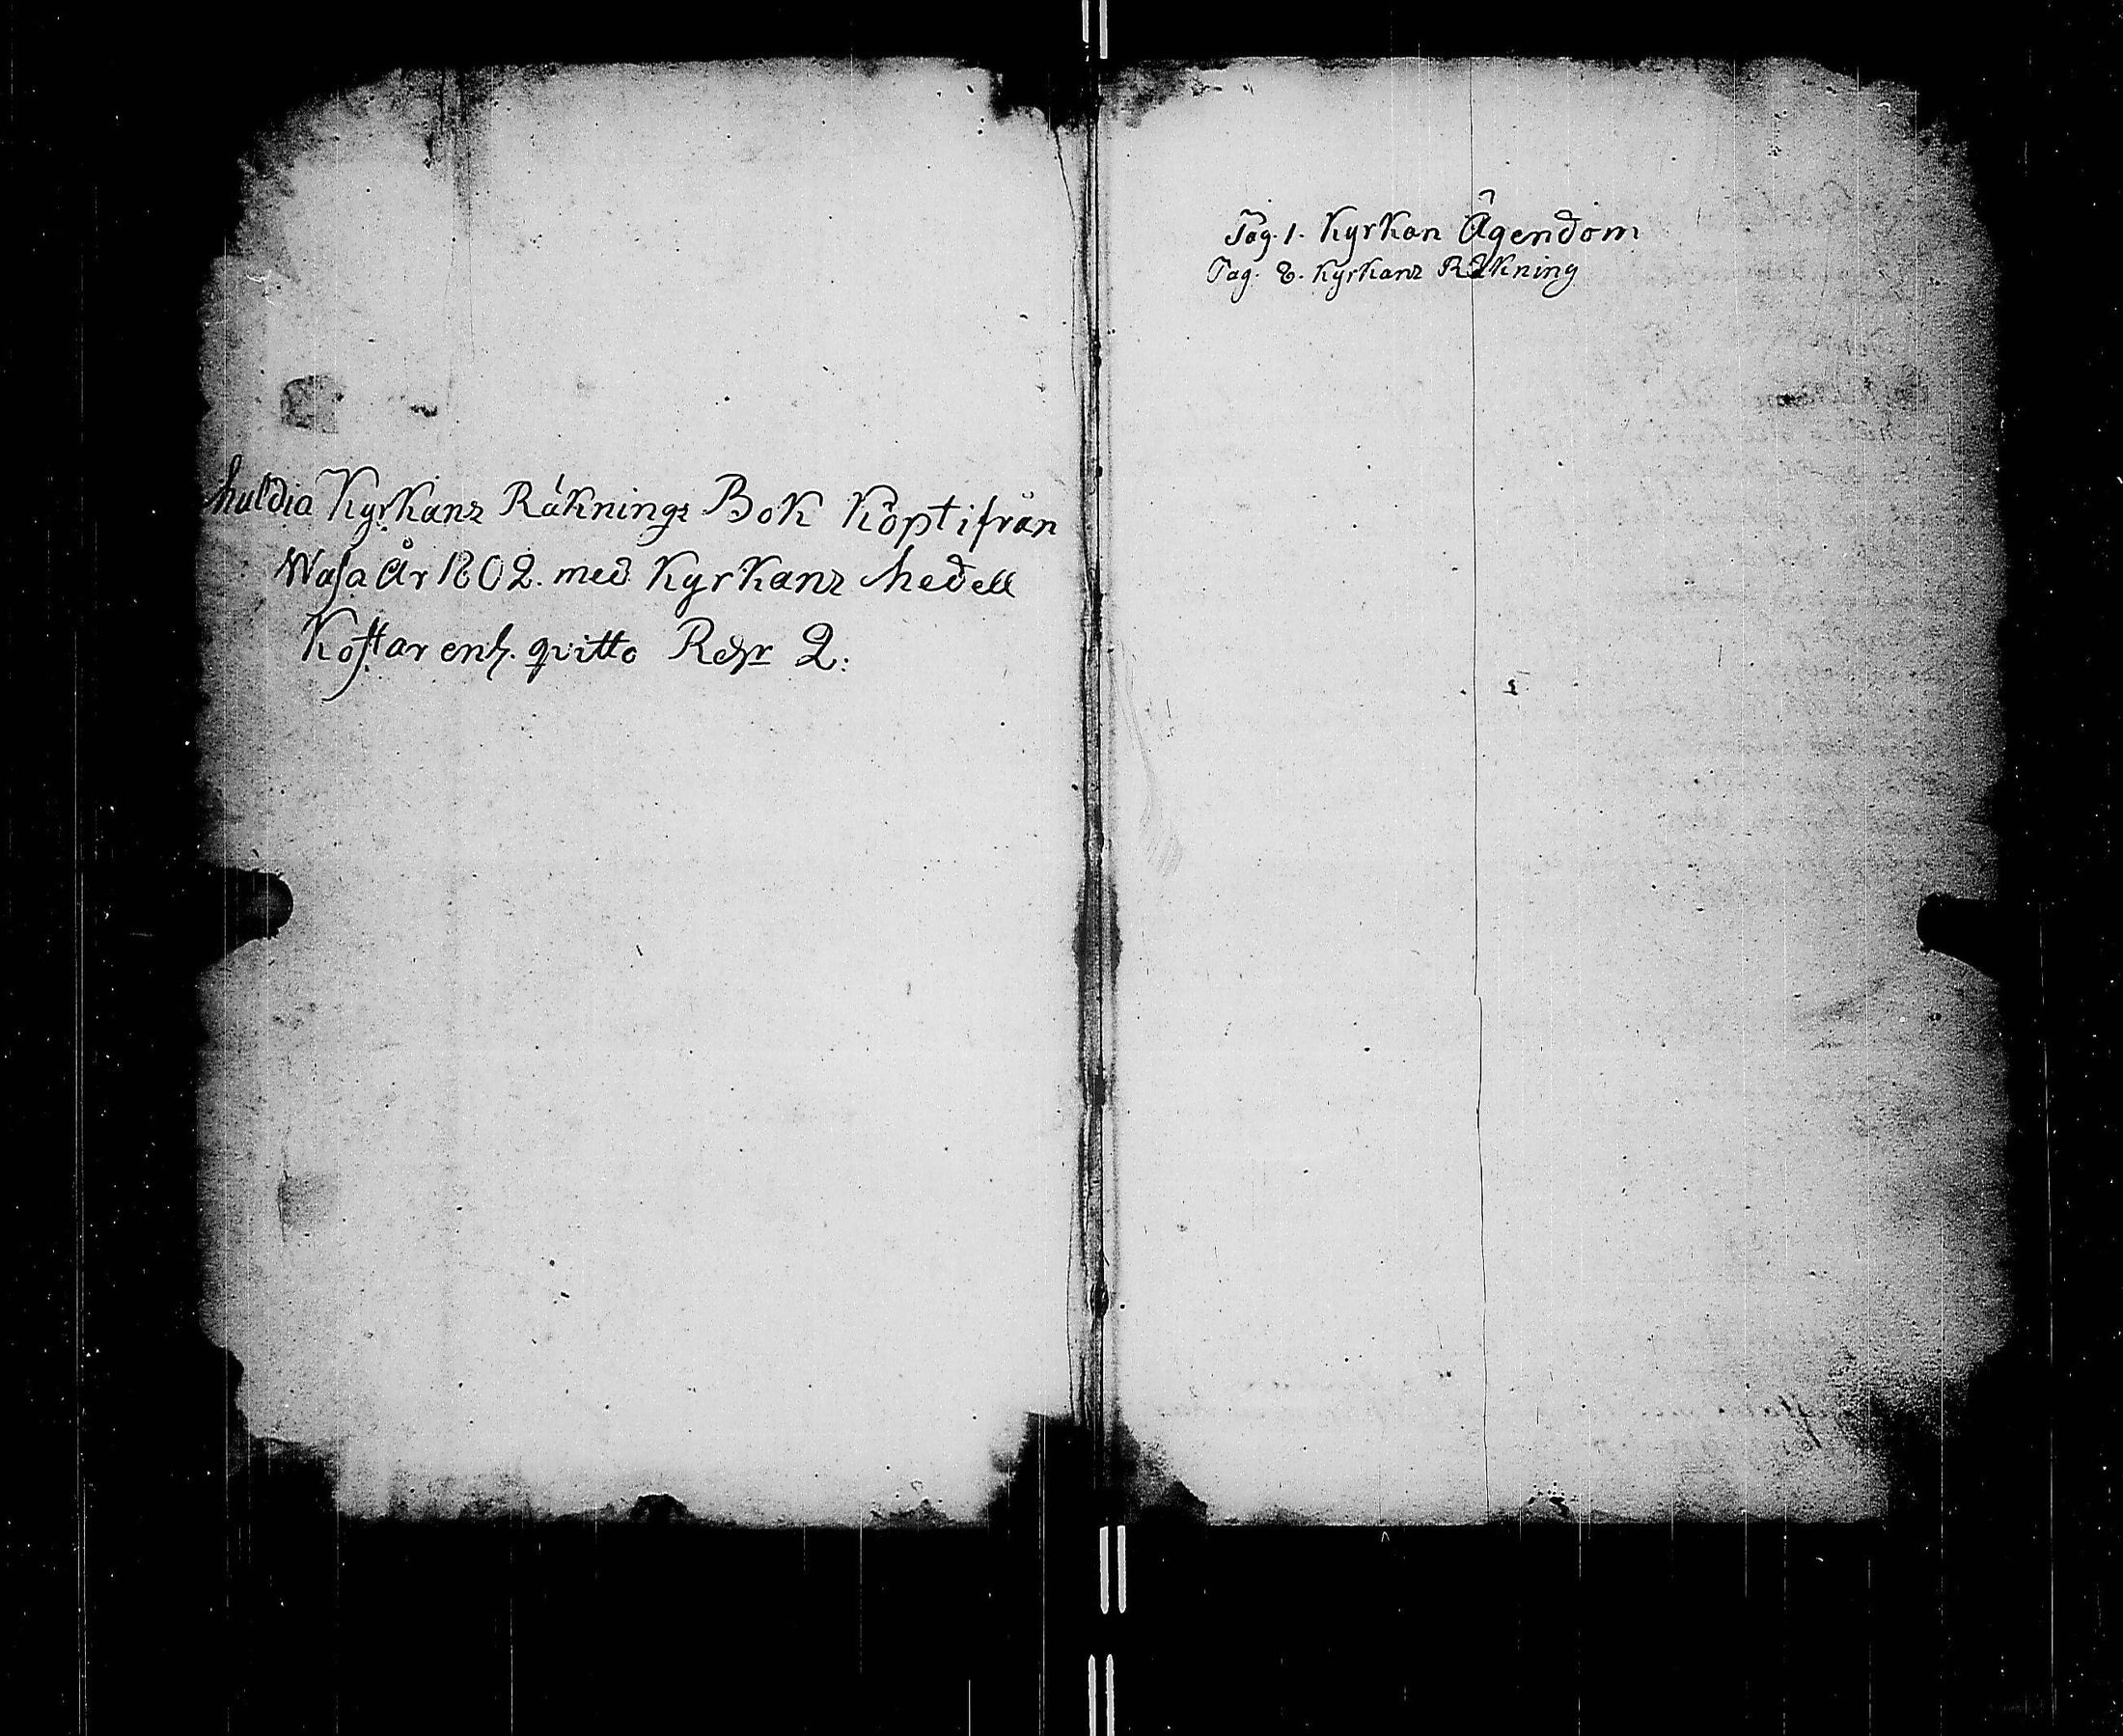 Muldia Kyrkans Räknings Bok Köpt ifrån
Wasa År 1802. med Kyrkans Medell
Kostar enl. qvitto Rdr 2:
Pag. 1. Kyrkan Ägendom
Pag. 8. Kyrkans Räkning